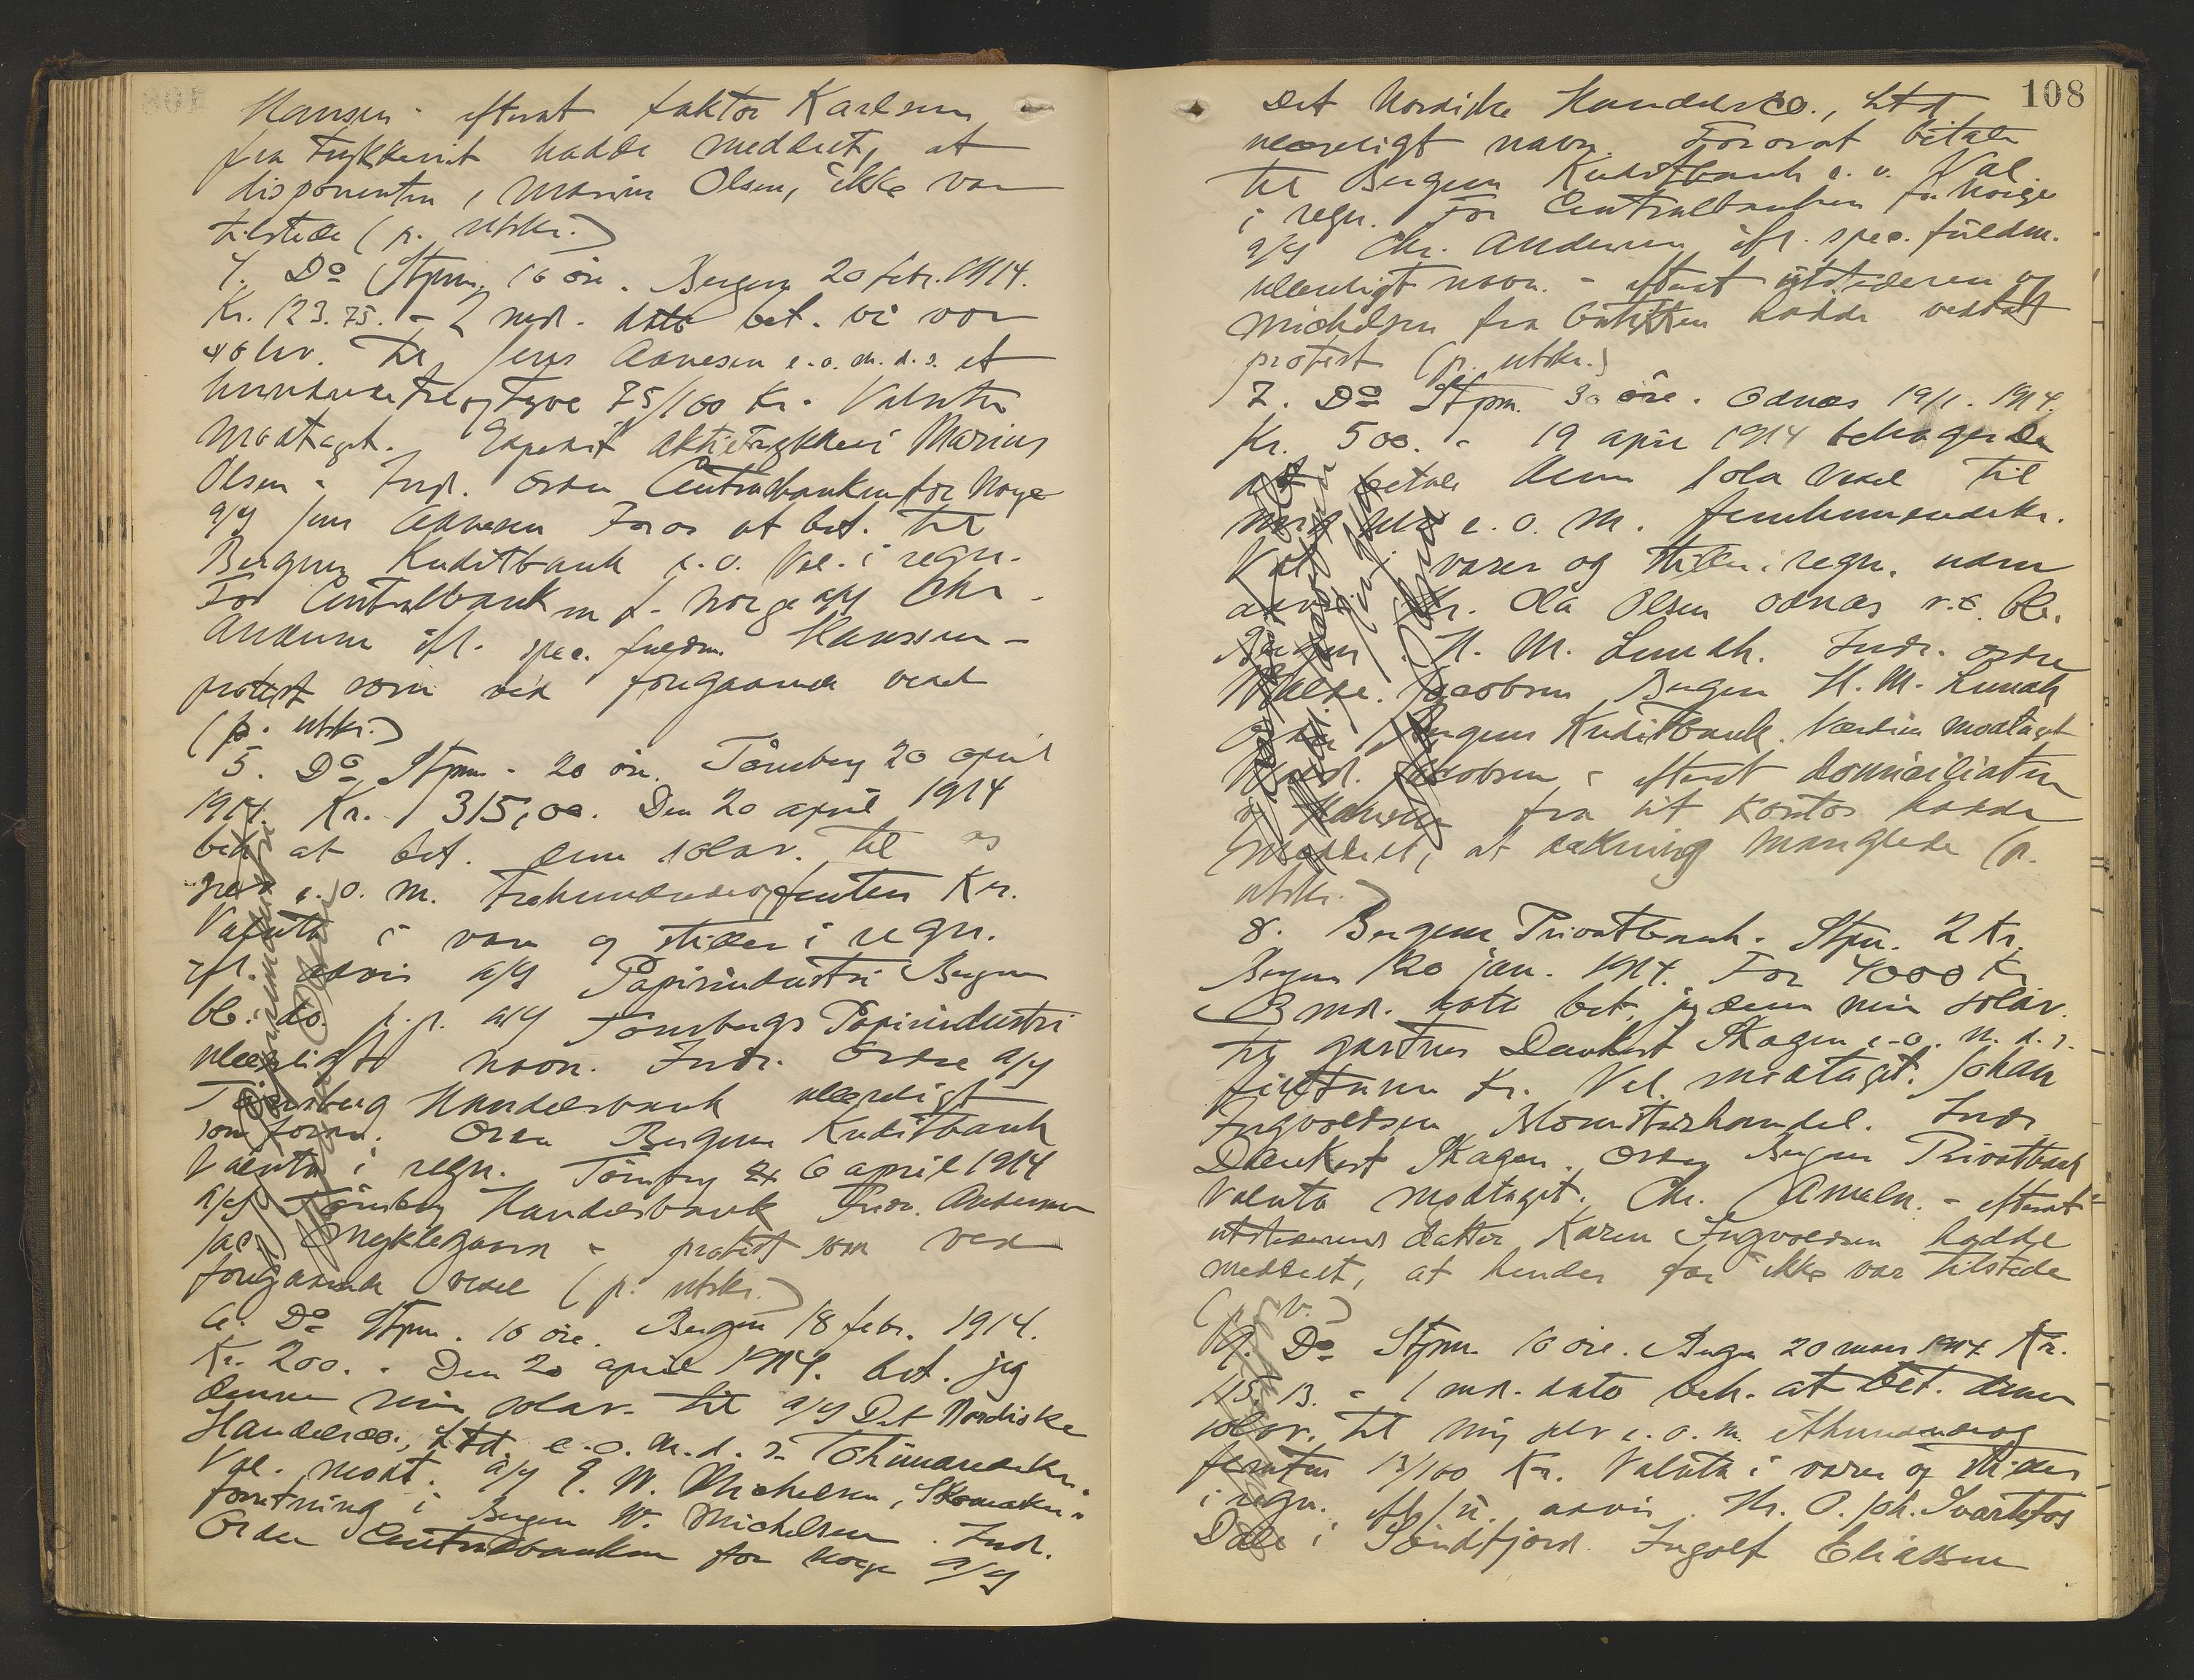 Hansen - efterat faktor Karlsen
fra trykkeriet hadde meddelt, at
disponenten, Marius Olsen, ikke var
tilstede (p. utskr.)
4. Do Stpm. 16 øre. Bergen 20 febr. 1914.
Kr. 123.75. - 2 mdr. dato bet. vi vor
solav. til Jens Aanesen e.o. m. d. s. et
hundrede treogtyve 75/100 Kr. Valuta
modtaget. Aktietrykkeri Marius
Olsen - Ind. Ordre Centralbanken for Norge
a/s Jens Aanesen For os at bet. til
Bergens Kreditbank e.o. Val. i regn.
For Centralbanken f. Norge a/s Chr.
Andersen ifl. spec. fuldm. Hanssen -
protest som ved foregaaende vexel
(p. utskr.)
5. Do Stpm. 20 øre. Tønsberg 20 april
1914. Kr. 315,00. Den 20 april 1914
beh at bet. denne solav. til os
selv e.o. m. Trehundredeogfemten Kr.
Valuta i vare og stilles i regn.
ifl. advis a/s Papirindustri Bergen
bt. do. p.p. a/s Tønsbergs Papirindustri
ulæseligt navn. Indr. Ordre a/s
Tønsberg Handelsbank ulæseligt
som foran. Ordre Bergens Kreditbank
Valuta i regn. Tønsberg 6 april 1914
a/s Tønsberg Handelsbank Fredr. Andersen
Jac Myklegaard - protest som ved
foregaaende vexel (p. utskr.)
6. Do Stpm. 16 øre. Bergen 18 febr. 1914.
Kr. 200. - Den 20 april 1914. bet. jeg
denne min solav. til a/s Det Nordiske
Handelsco., Ltd. e.o. m. d. s. Tohundredekr.
Val. modt. a/s E. W. Michelsen, Skomaker-
forretning i Bergen W. Michelsen. Ind.
Ordre Centralbanken for Norge a/s
108
Det Nordiske Handelsco., Ltd
ulæseligt navn. For os at betale
til Bergens Kreditbank e. o. Val.
i regn. For Centralbanken for Norge
a/s Chr. Andersen ifl. spec. fuldm.
ulæseligt navn. - efterat utstederen og
Michelsen fra butikken hadde vedtat
protest (p. utskr.)
7. Do Stpm. 30 øre. Odnæs 19/1. 1914.
Kr. 500. - 19 april 1914 behager De
at betale denne Sola Vexel til
mig selv e. o. m. femhundredekr.
Val. i varer og stilles i regn. uden
advis Hr. Ola Olsen Odnæs v.c. bt.
Bergen H. M. Lundh. Indr. ordre
Valdr. Jacobsen Bergen H. M. Lundh
Ordre Bergens Kreditbank. Værdien modtaget
Vald. Jacobsen - efterat domiciliaten
og Hansen fra sit kontor hadde
meddelt, at dækning manglede (p.
utskr.)
8. Bergens Privatbank. Stpm. 2 Kr.
Bergen 20 jan. 1914. For 4000 Kr.
3 mdr. dato bet. jeg denne min solav.
til gartner Dankert Skagen e.o. m. d. s.
firetusen Kr. Val. modtaget. Johan
Ingvoldsen Blomsterhandel. Indr.
Dankert Skagen. Ordre Bergens Privatbank
Valuta modtaget. Chr. Ameln. - efterat
utstederens datter Karen Ingvoldsen hadde
meddelt, at hendes far ikke var tilstede
(p. v.)
9. Do Stpm. 16 øre. Bergen 20 mars 1914. Kr.
115.13. - 1 md. dato beh. at bet. denne
solav. til mig selv e. o. m. ethundredeog
femten 13/100 Kr. Valuta i varer og stilles
i regn. ifl. advis. Hr. O. Joh. Svartefos
Dale i Søndfjord. Ingolf Eliassen